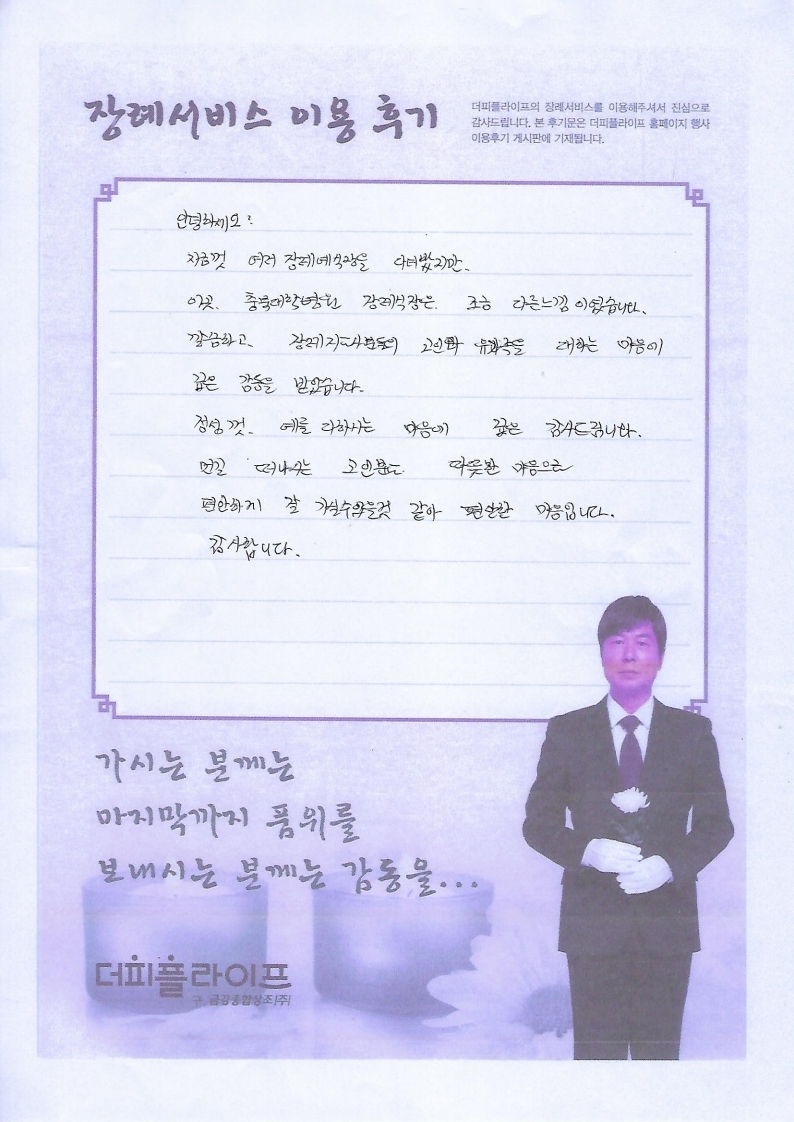 장례서비스 이용 후기
더피플라이프의 장례서비스를 이용해주셔서 진심으로
감사드립니다. 본 후기문은 더피플라이프 홈페이지 행사
이용후기 게시판에 기재됩니다.
안녕하세요?
지금껏 여러 장례예식장을 다녀봤지만.
이곳. 충북대학병원 장례식장은. 조금 다른느낌이였습니다.
깔끔하고. 장례지도사분들이 고인과 유화족을 대하는 마음이
깊은 감동을 받았습니다.
정성껏. 예를 다하시는 마음에 깊은 감사드립니다.
먼길 떠나시는 고인분도. 따뜻한 마음으로
편안하게 잘 가실수있을것 같아 편안한 마음입니다.
감사합니다.
가시는 분께는
마지막까지 품위를
보내시는 분께는 감동을...
더피플라이프
구. 금강종합상조(주)